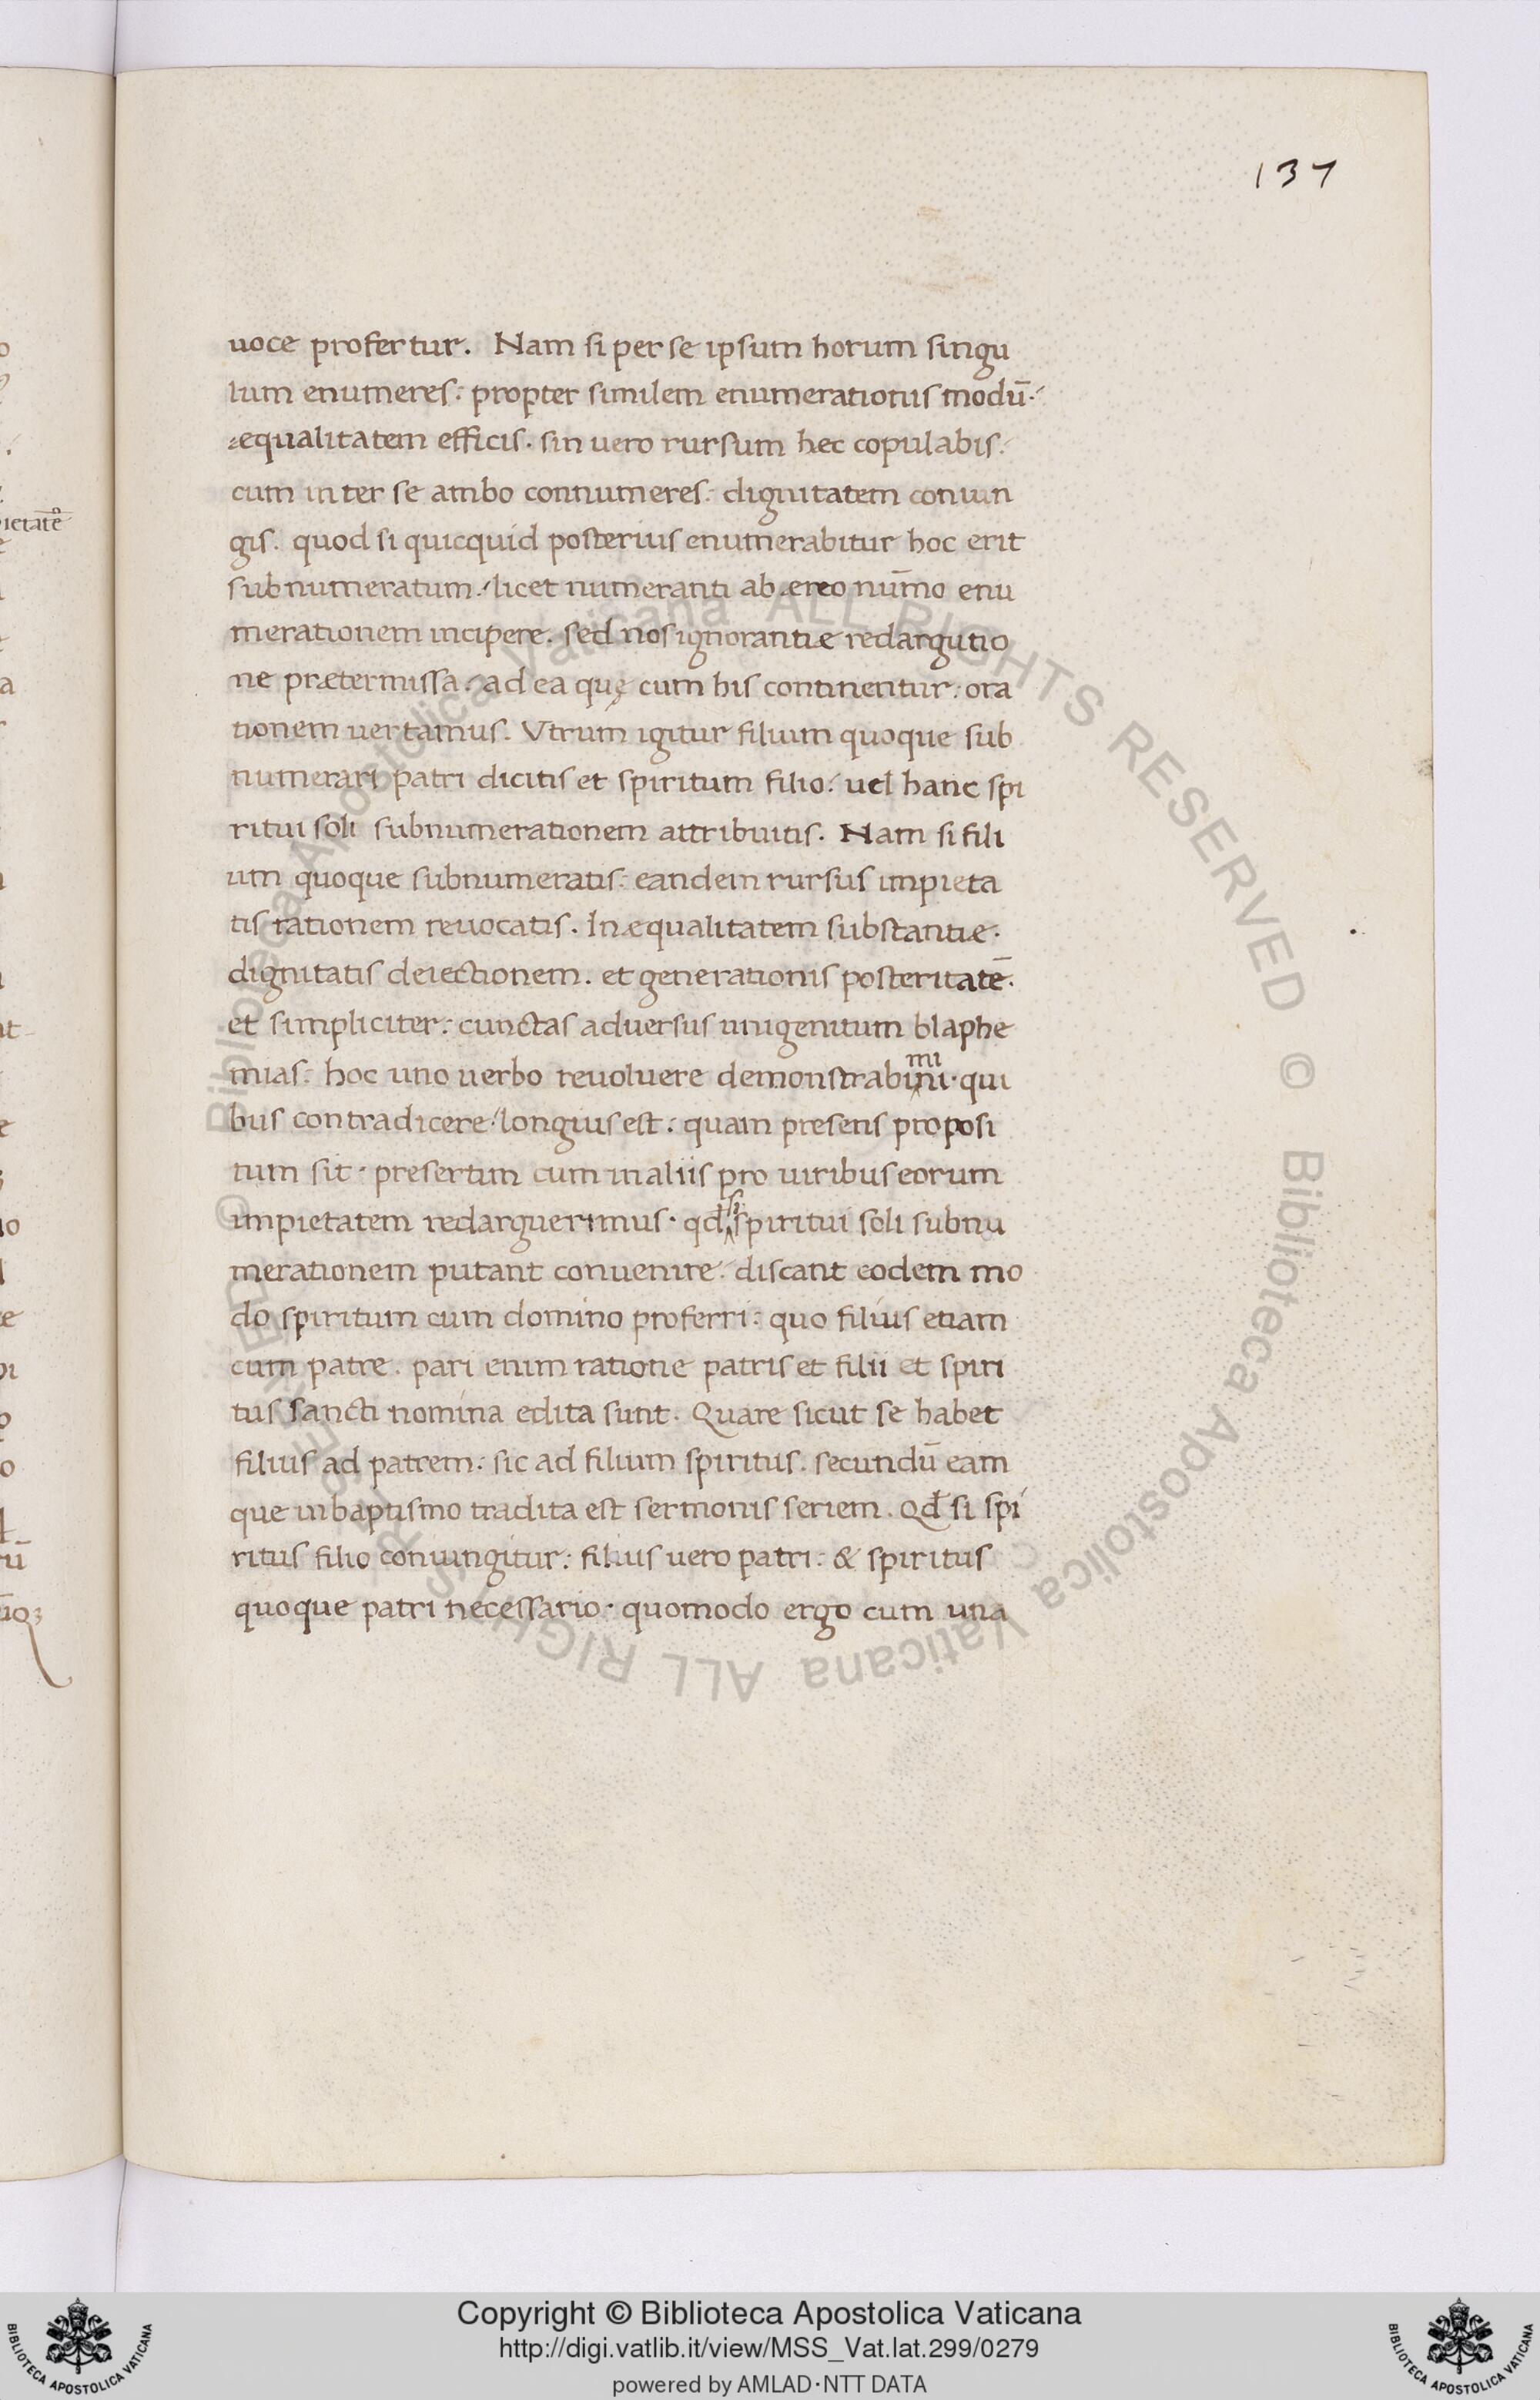 137
uoce profertur. Nam si per se ipsum horum singu
lum enumeres: propter similem enumerationis modū.
æqualitatem efficis. sin uero rursum hec copulabis.
cum inter se ambo connumeres: dignitatem coniun
gis. quod si quicquid posterius enumerabitur hoc erit
subnumeratum. licet numeranti ab æreo num̄o enu
merationem incipere. sed nos ignorantiæ redargutio
ne prætermissa. ad ea quę cum his continentur: ora
tionem uertamus. Vtrum igitur filium quoque sub
numerari patri dicitis et spiritum filio. uel hanc spi
ritui soli subnumerationem attribuitis. Nam si fili
um quoque subnumeratis: eandem rursus impieta
tis rationem reuocatis. Inæqualitatem substantiæ.
dignitatis deiectionem. et generationis posteritatē.
et simpliciter: cunctas aduersus unigenitum blaphe
mi
mias: hoc uno uerbo reuoluere demonstrabini. qui
bus contradicere longius est: quam presens proposi
tum sit. presertim cum in aliis pro uiribus eorum
si
impietatem redarguerimus. qđ spiritui soli subnu
merationem putant conuenire. discant eodem mo
do spiritum cum domino proferri: quo filius etiam
cum patre. pari enim ratione patris et filii et spiri
tus sancti nomina edita sunt. Quare sicut se habet
filius ad patrem: sic ad filium spiritus. secundū eam
que in baptismo tradita est sermonis seriem. Qđ si spi
ritus filio coniungitur: filius uero patri: & spiritus
quoque patri necessario. quomodo ergo cum una
© Biblioteca Apostolica Vaticana ALL RIGHTS RESERVED © Biblioteca Apostolica Vaticana ALL RIGHTS RESERVED
Copyright © Biblioteca Apostolica Vaticana
http://digi.vatlib.it/view/MSS_Vat.lat.299/0279
powered by AMLAD·NTT DATA
BIBLIOTECA APOSTOLICA VATICANA
BIBLIOTECA APOSTOLICA VATICANA